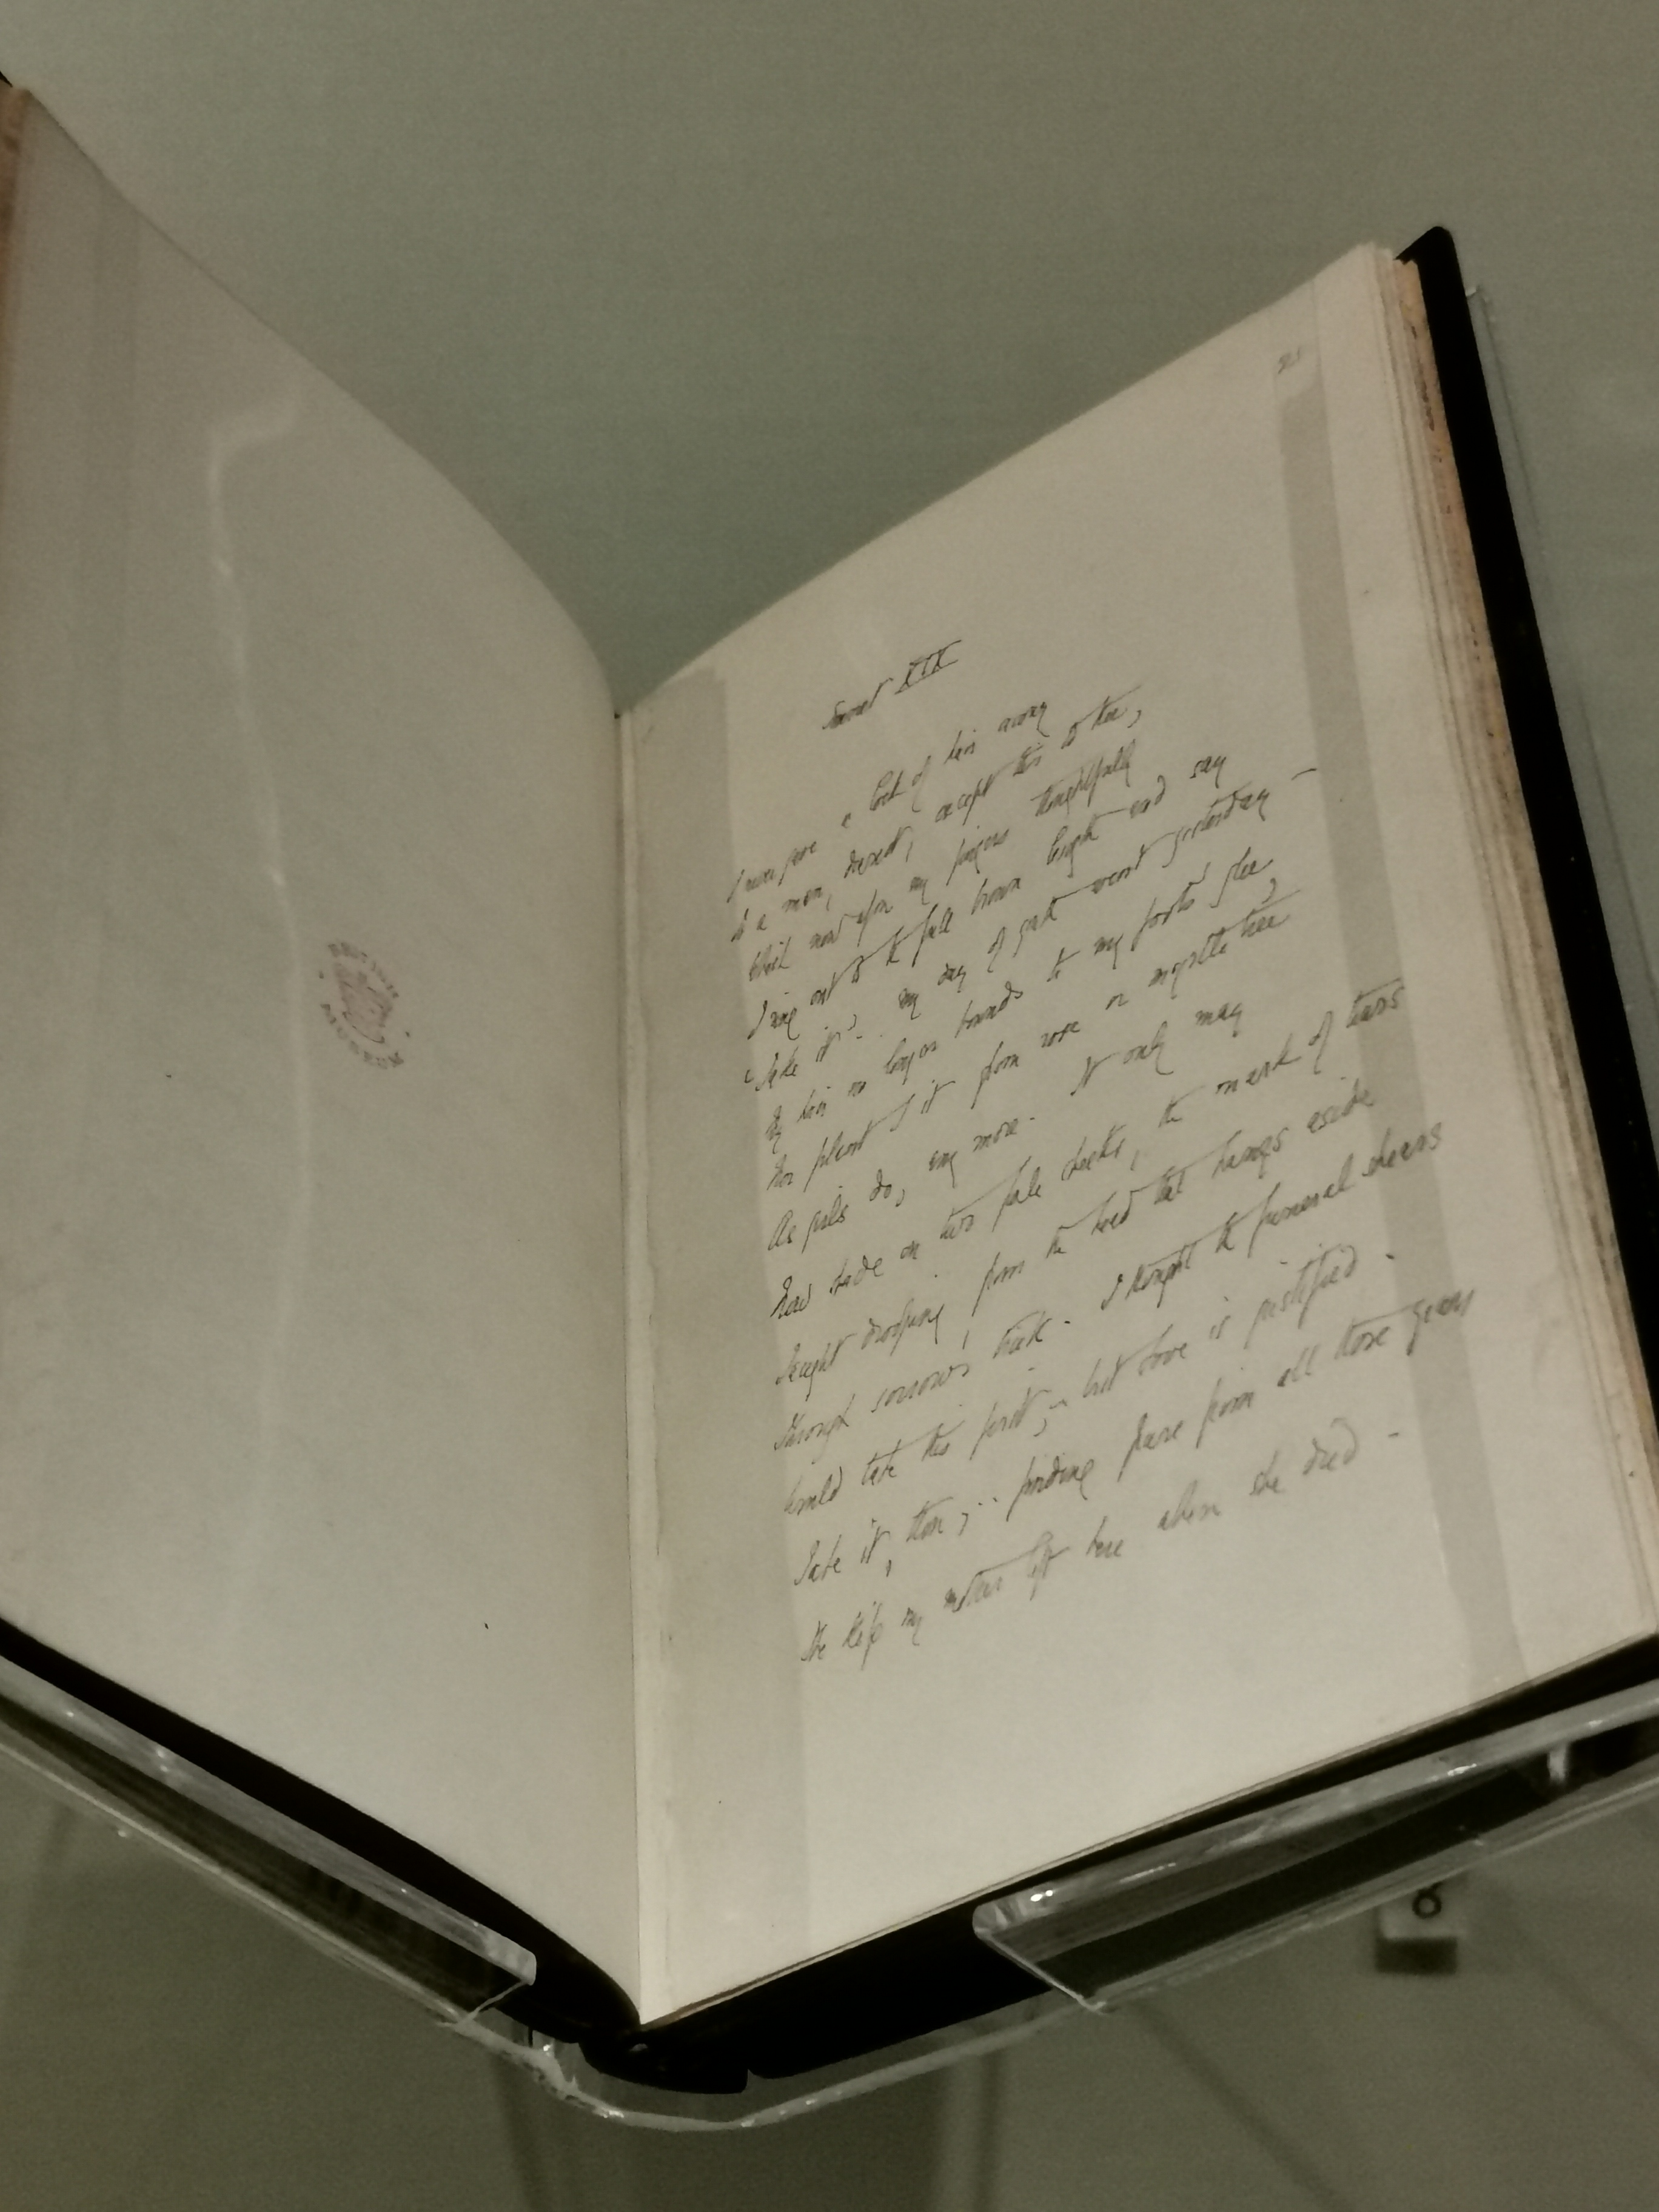 Sonnet XIX
I never gave a lock of hair away
To a man, dearest, except this to thee,
Which now upon my fingers thoughtfully
I ring out to the full brown length and say
'Take it'.. my day of youth went yesterday —
My hair no longer bounds to my foot's glee,
Nor plant I it from rose or myrtle tree
As girls do, any more. It only may
Now shade on two pale cheeks, the mark of tears
Taught drooping from the head that hangs aside
Through sorrow's trick. I thought the funeral shears
Would take this first;- but Love is justified -
Take it, thou;.. finding pure from all those years
The kiss my mother left here when she died -